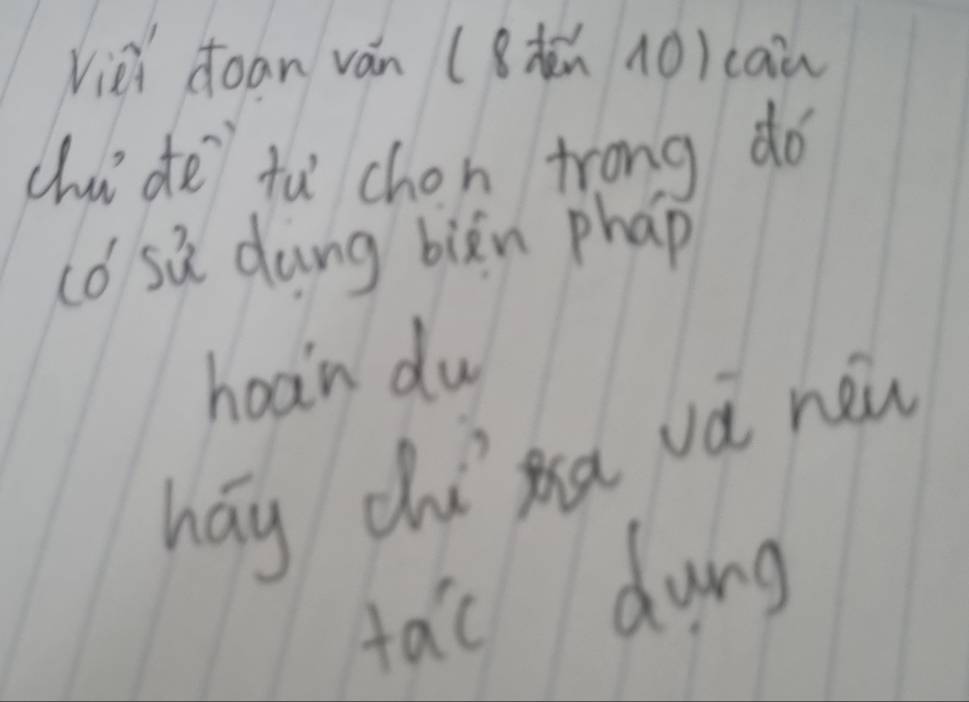 Viết đoạn văn (8 đến 10) câu
chủ đề tự chọn trong đó
có sử dụng biện pháp
hoán dụ
hãy chỉ ra và nêu
tác dụng